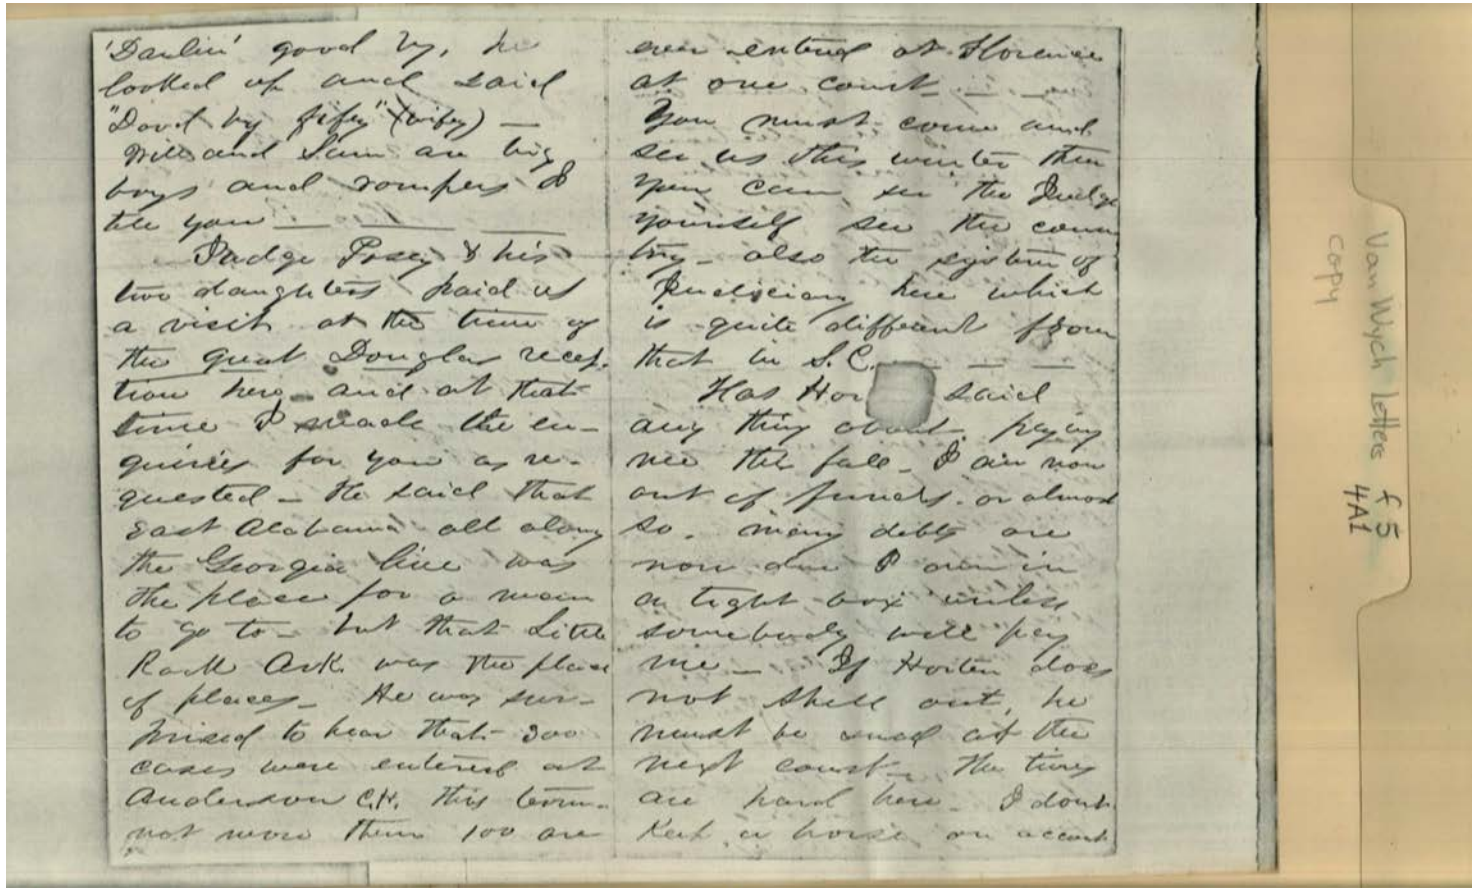 'Darlin' good by, he
looked up and said
"Dood by fifey" (wifey) —
Will and Sam are big
boys and rompers I
tell you — — —
Judge Posey & his
two daughters paid us
a visit at the time of
the great Douglas recep-
tion here and at that
time I made the en-
quiries for you as re-
quested – He said that
East Alabama all along
the Georgia line was
the place for a man
to go to – but that Little
Rock Ark was the place
of places – He was sur-
prised to hear that 300
cases were entered at
Anderson C.H. this term –
not more than 100 are
ever entered at Florence
at one court – – –
You must come and
see us this winter then
you can see the Judge
yourself see the coun
try – also the system of
Judiciary here which
is quite different from
that in S.C. — — —
Has Hor said
any thing about paying
me this fall – I am now
out of funds – or almost
so, many debts are
now due & am in
a tight box unless
somebody will pay
me – If Horten does
not shell out, he
must be sued at the
next court – The times
are hard here – I dont
keep a horse on account
Van Wych letters f5
4A1
copy